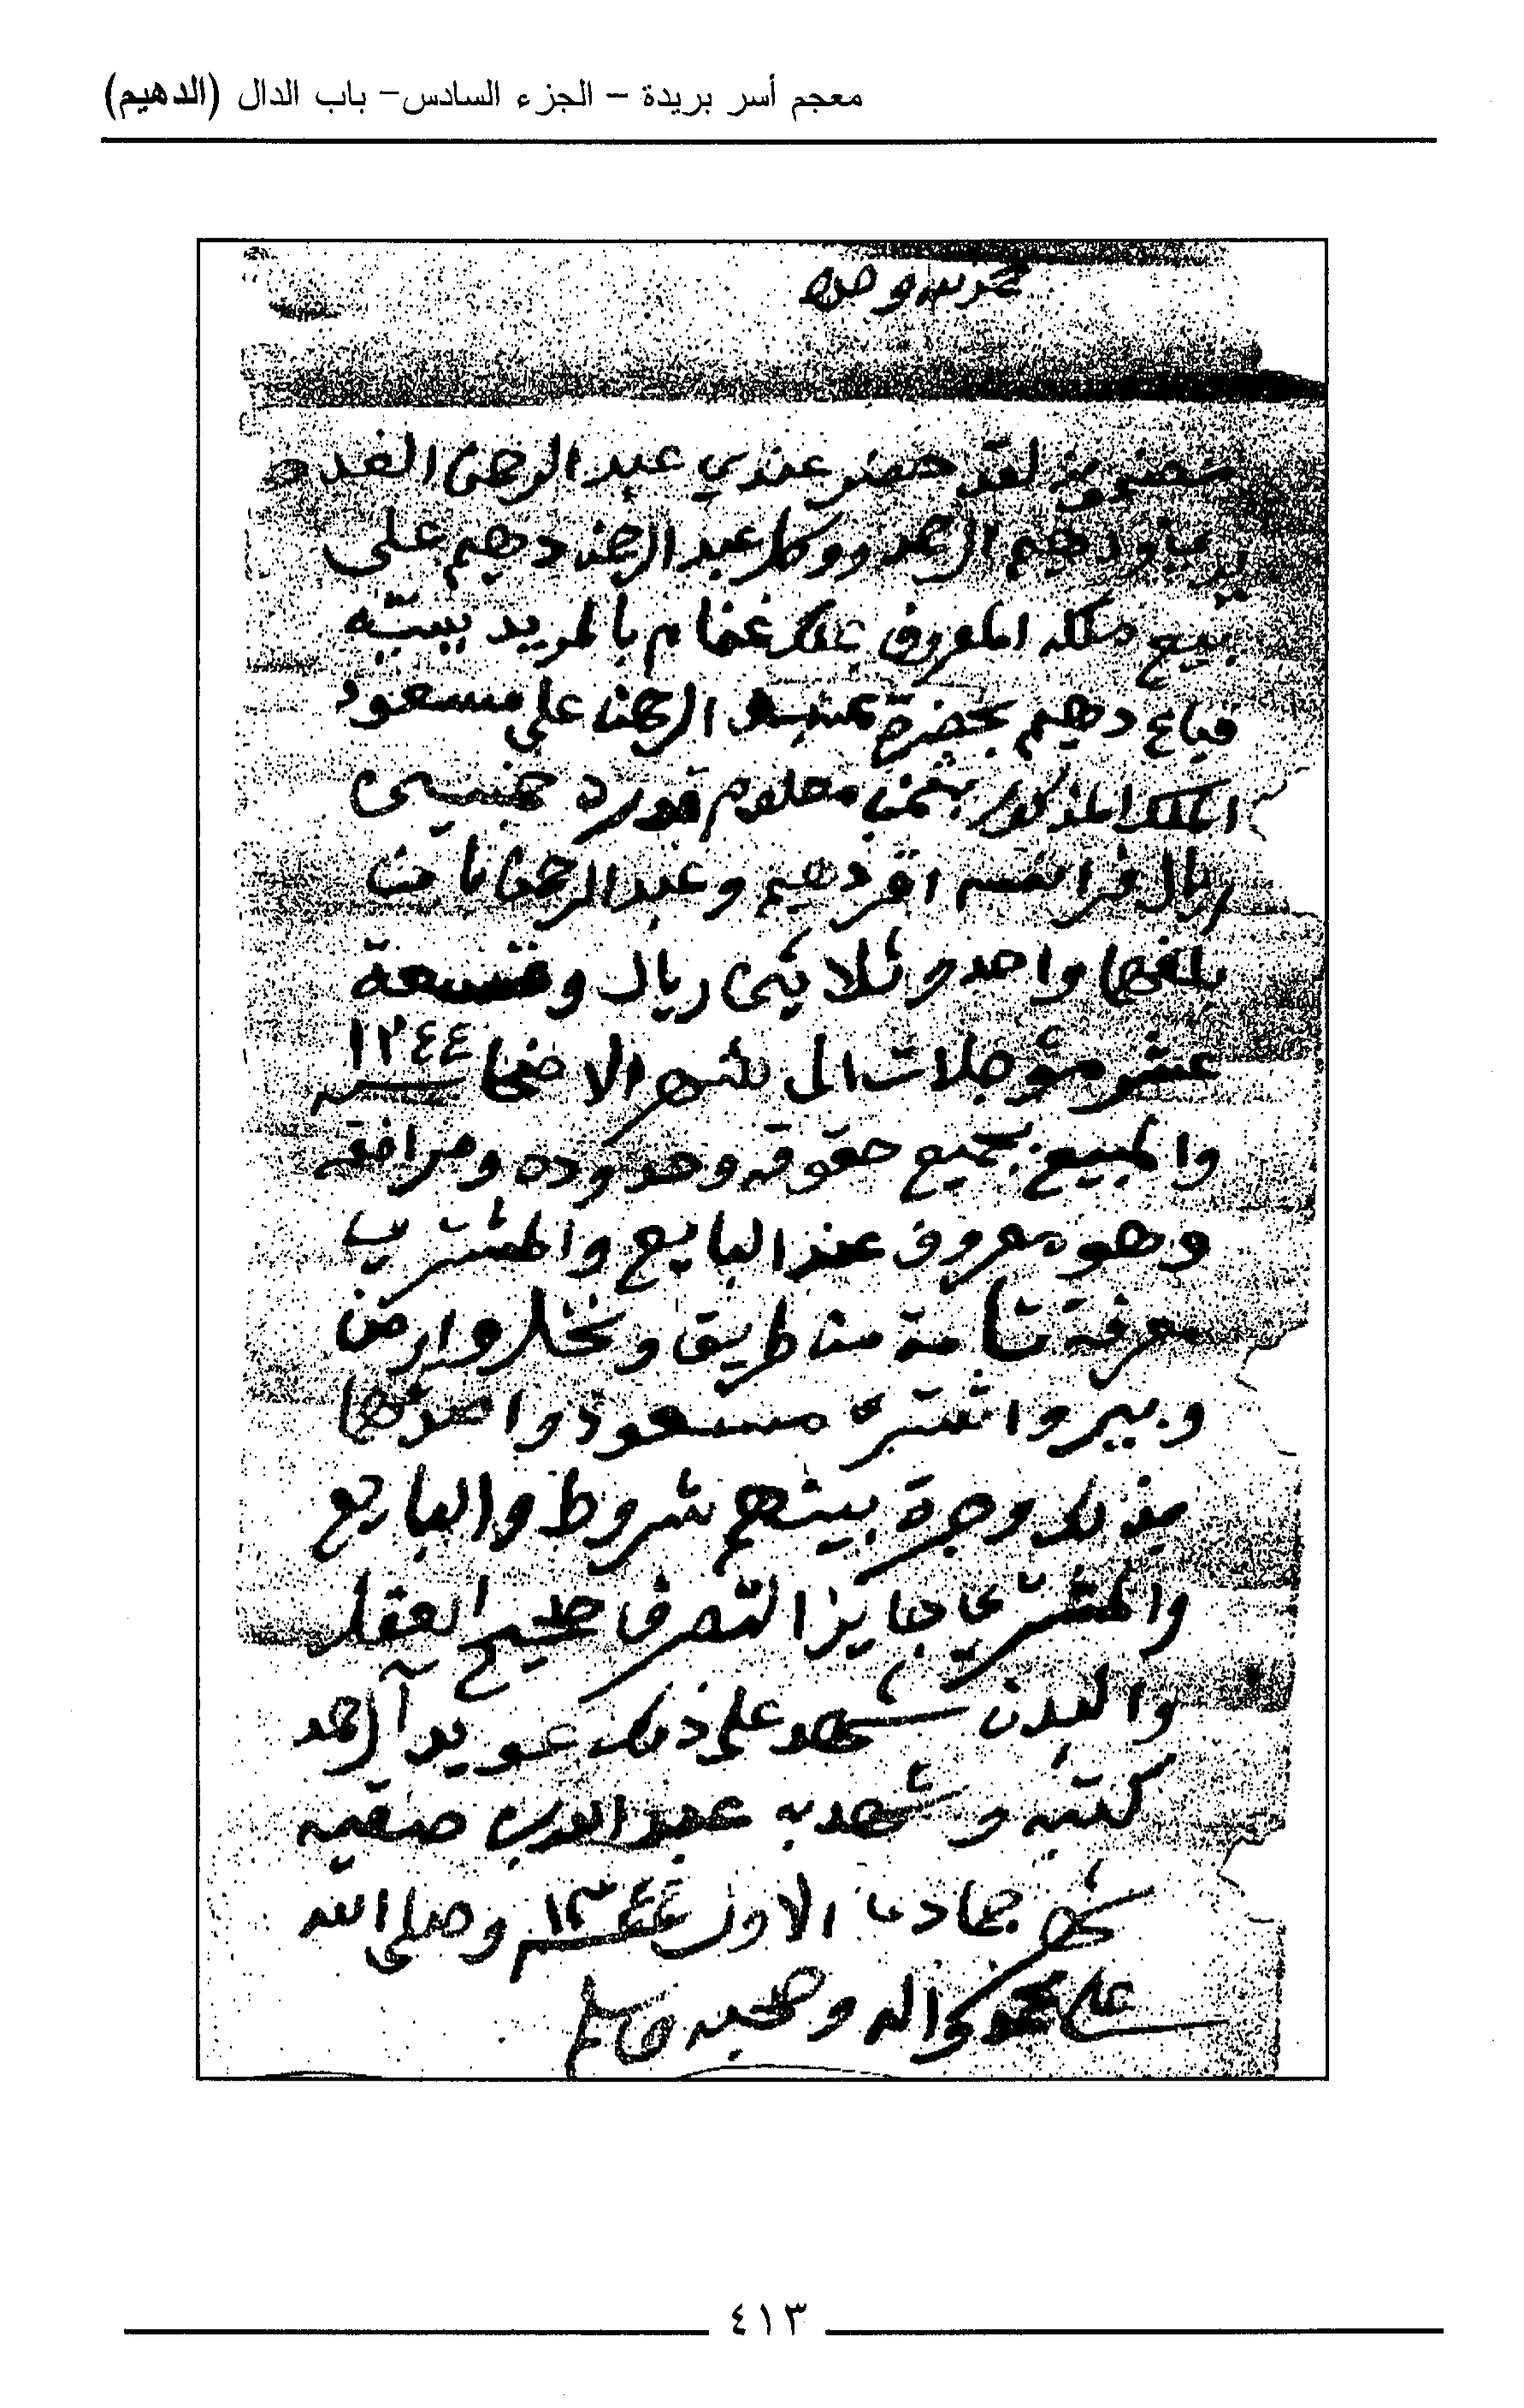 معجم أسر بريدة – الجزء السادس– باب الدال (الدهيم)
الحمد لله وحده
مضمونه لقد حضر عندي عبد الرحمن
ودهيم الحمد ووكل عبد الرحمن دهيم على
بيع ملكه المعروف بملك غنام بالمريديسيه
فباع دهيم بحضرة عبد الرحمن على مسعود
الملك المذكور بثمن معلوم قدره خمسين
ريال فرانسه اقر دهيم وعبد الرحمن بان من
بلغهما واحد وثلاثين ريال وتسعة
عشر مؤجلات الى شهر الاضحا ١٣٤٤
والمبيع بجميع حقوقه وحدوده ومرافقه
وهو معروف عند البايع والمشتري
معرفة تامة من طريق ونخل وارض
وبير واشترى مسعود
بذلك وجرة بينهم شروط والبايع
والمشتري جايز التصرف صحيح العقل
والبدن شهد على ذلك عويد الحمد
كتبه وشهد به
شهر جمادى الاول ١٣٤٤ وصلى الله
على محمد واله وصحبه وسلم
٤١٣